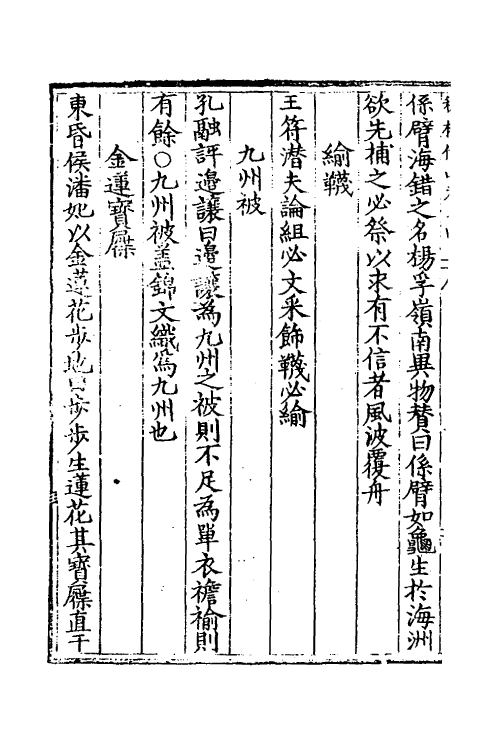 係臂海錯之名楊孚嶺南異物賛曰係臂如龜生於海洲
欲先捕之必祭以求有不信者風波覆舟
緰䩺
王符潛夫論組必文采飾䩺必緰
九州被
孔融評邉讓曰邉讓為九州之被則不足為單衣襜褕則
有餘○九州被盖錦文織為九州也
金蓮寳屧
東昏侯潘妃以金蓮花步地曰步步生蓮花其寳屧直千